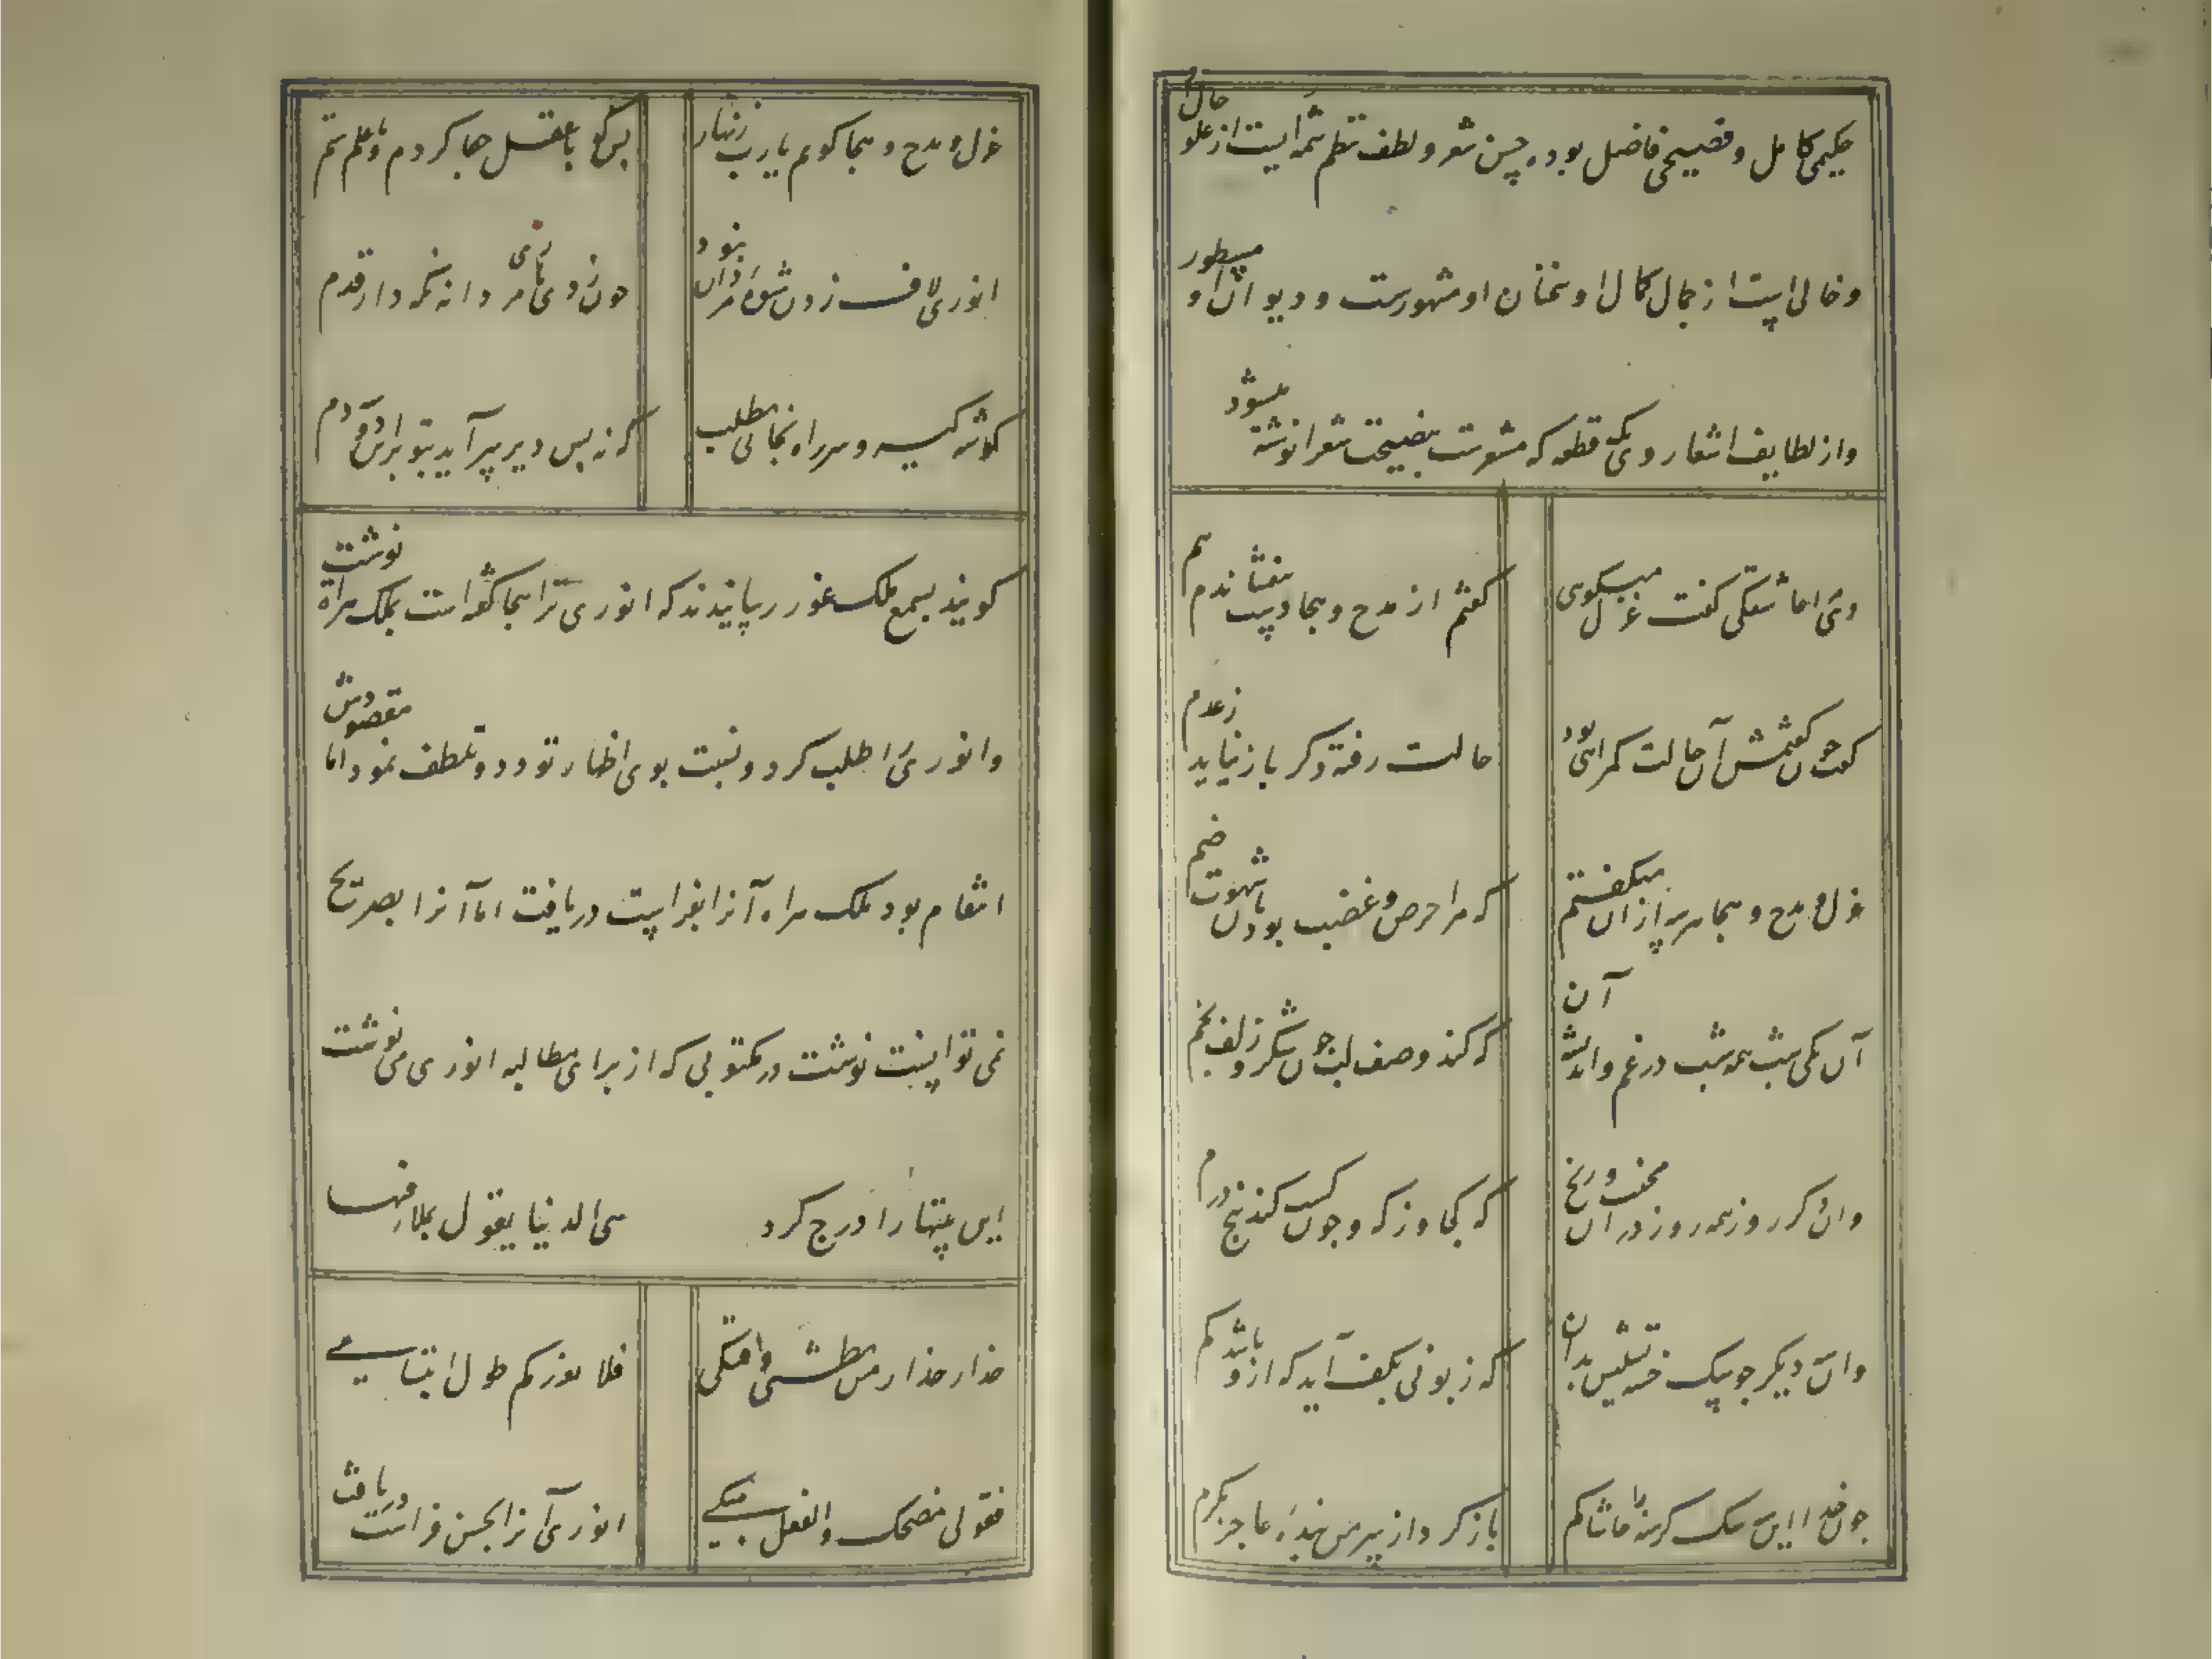 حکیمی کامل و فصیحی فاضل بوده حسن شعر و لطف نظم شمه ایست از علو حال او
و خالی است از جمال کمال او سخنان او مشهورست و دیوان او مسطور
و از لطایف اشعار وی یک قطعه که مشعرست بنصیحت شعرا نوشته میشود
دی مرا عاشقکی گفت غزل میکوی
کفتم از مدح و هجا دست بیفشاندم هم
کفت چون کفتمش آن حالت کمراهی بود
حالت رفته دکر باز نیاید ز عدم
غزل و مدح و هجا هر سه از آن میکفتم
که مرا حرص و غضب بود بآن شهوت ضم
آن یکی شب همه شب در غم و اندیشه آن
که کند وصف لب چون شکر و زلف بخم
وان دکر روز همه روز در آن محنت و رنج
که کجا وز که و چون کسب کند پنج درم
وان دیکر چو سک خسته تسلیش بدان
که زبونی بکف آید که ازو باشد کم
چون خدا این سک کرسنه را حاشاکم
باز کرد از سر من بنده عاجز بکرم
غزل و مدح و هجا کویم یا رب زنهار
بس که با عقل جفا کردم و با علم ستم
انوری لاف زدن شیوه مردان نبود
چون زدی باری مردانه نکه دار قدم
کوشه کیر و سر راه نجاتی مطلب
که نه بس دیر سر آید بتو بر این دم
کویند بسمع ملک غور رسانیدند که انوری ترا هجا کفته است بملک هراة نوشت
و انوری را طلب کرد و نسبت بوی اظهار تودد و تلطف نمود اما مقصودش
انتقام بود ملک هراه آنرا بفراست دریافت اما آنرا بصریح
نمی توانست نوشت در مکتوبی که از برای مطالبه انوری می نوشت
این بیتها را درج کرد هی الدنیا یقول بملا فیها
حذار حذار من بطشی و فتکی
فلا یغررکم طول ابتسامی
فقولی مضحک والفعل مبکی
انوری آنرا بحسن فراست دریافت